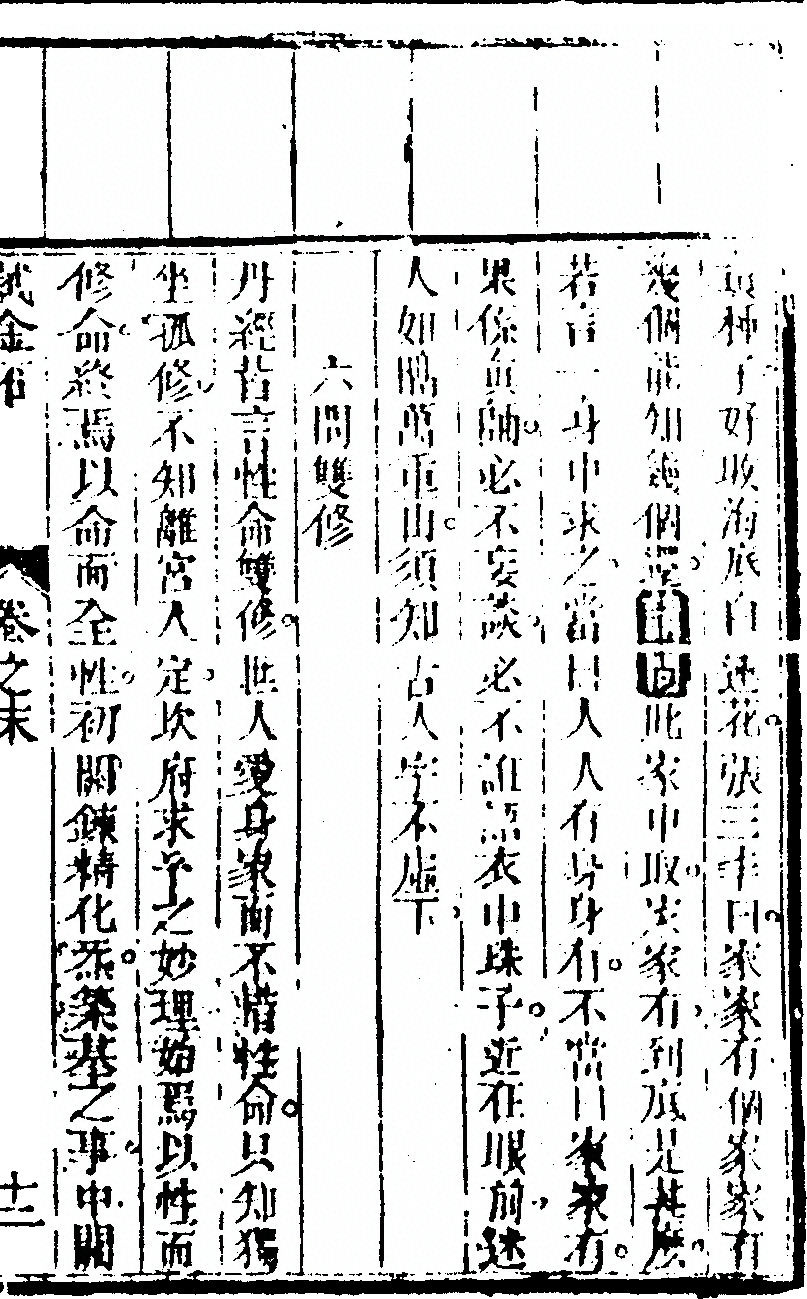 真種子好收海底白蓮花張三丰曰家家有個家家有
幾個能知幾個還此家中取實家有到底是甚麼
若言一身中求之當曰人人有身身有不當曰家家有
果係真師必不妄談必不誑語衣中珠子近在眼前迷
人如隔萬重山須知古人字不虛下
六問雙修
丹經皆言性命雙修世人愛身家而不惜性命只知獨
坐孤修不知離宮入定坎府求予之妙理始焉以性而
修命終焉以命而全性初關鍊精化炁築基之事中關
試金石 卷之末 十二